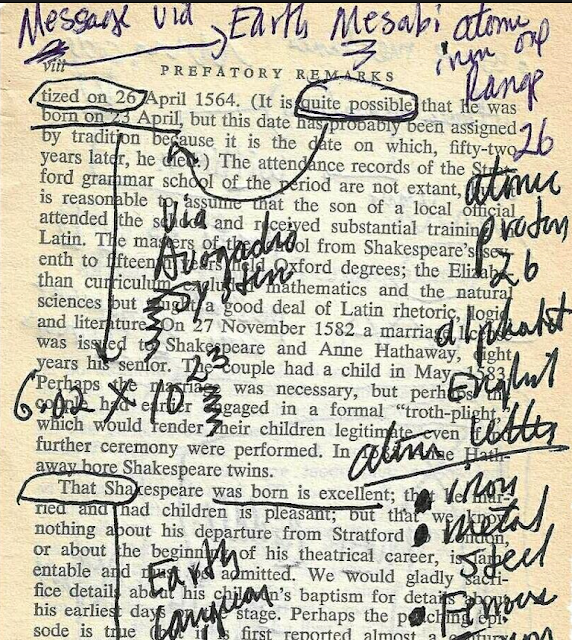 Message via Earth Mesabi atomic
iron ore
Range
viii
PREFATORY REMARKS
tized on 26 April 1564. (It is quite possible that he was
born on 23 April, but this date has probably been assigned
by tradition because it is the date on which, fifty-two
26
years later, he died.) The attendance records of the Strat-
ford grammar school of the period are not extant,
atomic
is reasonable to assume that the son of a local official
attended the school and received substantial training
via
proton
Latin. The masters of the school from Shakespeare's sev-
Avogadro
enth to fifteenth years held Oxford degrees; the Eliza
26
than curriculum excluded mathematics and the natural
System
sciences but taught a good deal of Latin rhetoric, logic
and literature. On 27 November 1582 a marriage license
alphabet
was issued to Shakespeare and Anne Hathaway, eight
years his senior. The couple had a child in May, 1583.
English
Perhaps the marriage was necessary, but perhaps the
6.02 X 10 23
couple had earlier engaged in a formal "troth-plight"
letters
which would render their children legitimate even if
further ceremony were performed. In Anne Hath-
away bore Shakespeare twins.
That Shakespeare was born is excellent; that he mar-
iron
ried and had children is pleasant; but that we know
metal
nothing about his departure from Stratford London,
steel
or about the beginning of his theatrical career, is lam-
entable and must be admitted. We would gladly sacri-
Earth
fice details about his children's baptism for details about
Ferrous
his earliest days stage. Perhaps the poaching epi-
sode is true first reported almost